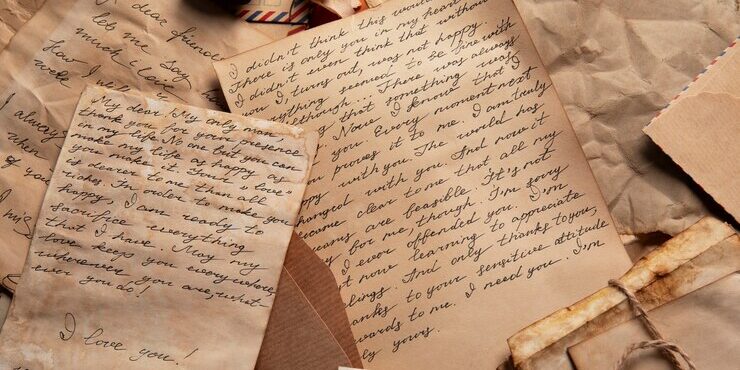 dear friend
let me say
much I
how I
were
I always
when
of you
My dear! My only man!
thank you for your presence
in my life. No one but you can
make my life as happy as
you make it. Your "love"
is dearer to me than all
riches. In order to make you
happy, I am ready to
sacrifice everything
that I have. May my
love keep you everywhere,
wherever you are, what-
ever you do!
I love you!
I didn't think this would
There is only you in my heart
I didn't even think that without
you I, turns out, was not happy.
everything seemed to be fine with
although... There was always
that something was
you. Now I know that I
you. Every moment next
proves it to me. I am truly
happy with you. The world has
changed with you. And now it
became clear to me that all my
dreams are feasible. It's not
easy for me, though. I'm sorry
I ever offended you. I'm
just now learning to appreciate
feelings. And only thanks to you,
thanks to your sensitive attitude
towards to me. I need you. I'm
yours.